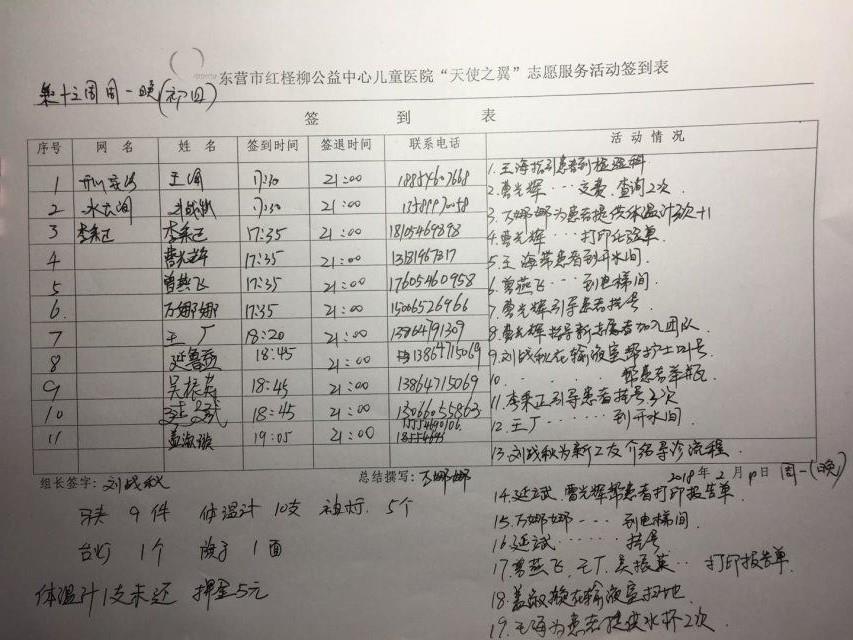 东营市红柽柳公益中心儿童医院“天使之翼”志愿服务活动签到表
第十三周周一晚(初四)
签 到 表
序号 网 名 姓 名 签到时间 签退时间 联系电话 活 动 情 况
1 王海 17:30 21:00
2 水云间 刘战秋 17:30 21:00
3 李秉正 李秉正 17:35 21:00 18105469898
4 曹光辉 17:35 21:00
5 曾燕飞 17:35 21:00 17605460958
6. 万娜娜 17:35 21:00 15006526966
7 王厂 18:20 21:00
8 延鲁斌 18:45 21:00 13864715069
9 吴振英 18:45 21:00 13864715069
10 延斌 18:45 21:00 13066055863
11 盖淑璇 19:05 21:00
1.王海指引患者到检验科
2.曹光辉···交费.查询2次.
3.万娜娜为患者提供体温计3次+1
4.曹光辉···打印化验单.
5.王海带患者到开水间.
6.曾燕飞···到电梯间.
7.曹光辉引导患者挂号.
8.曹光辉指导新志愿者加入团队.
9.刘战秋在输液室帮护士叫号
10. 帮患者举瓶.
11.李秉正引导患者挂号3次
12.王厂······到开水间.
13.刘战秋为新义友介绍导诊流程.
组长签字:刘战秋 总结撰写:万娜娜 2018年2月19日 周一(晚)
马夹9件 体温计10支 袖标.5个
台灯1个 旗子1面
体温计1支未还 押金5元
14.延斌.曹光辉帮患者打印报告单.
15.万娜娜····到电梯间.
16.延斌·····挂号
17.曾燕飞.王厂.吴振英···打印报告单.
18.盖淑璇在输液室扫地.
19.王海为患者提供水杯2次.